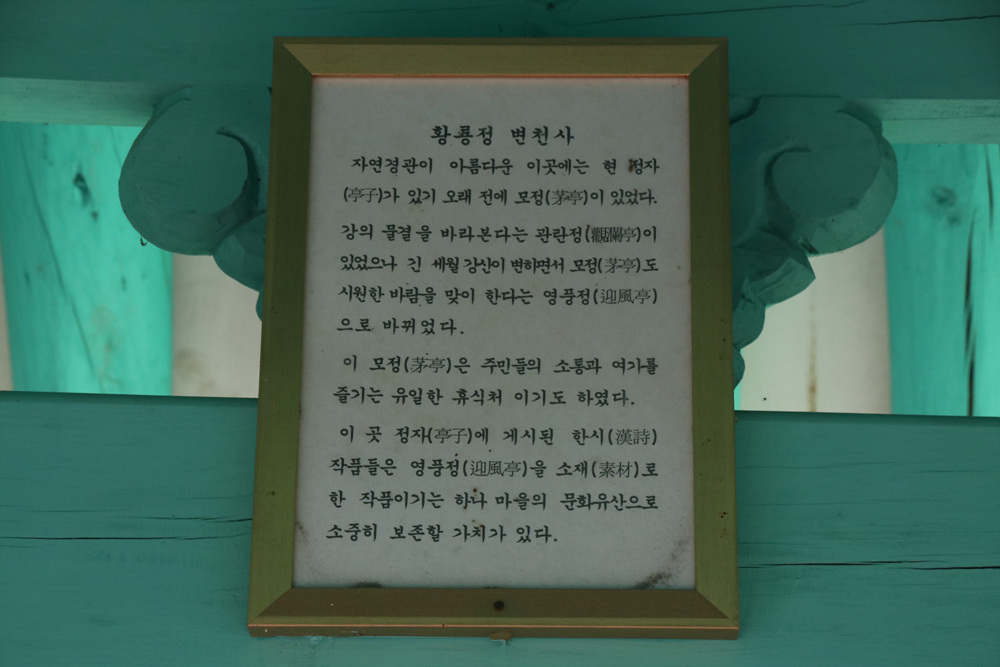 황룡정 변천사
자연경관이 아름다운 이곳에는 현 정자
(亭子)가 있기 오래 전에 모정(茅亭)이 있었다.
강의 물결을 바라본다는 관란정(觀瀾亭)이
있었으나 긴 세월 강산이 변하면서 모정(茅亭)도
시원한 바람을 맞이 한다는 영풍정(迎風亭)
으로 바뀌었다.
이 모정(茅亭)은 주민들의 소통과 여가를
즐기는 유일한 휴식처 이기도 하였다.
이 곳 정자(亭子)에 게시된 한시(漢詩)
작품들은 영풍정(迎風亭)을 소재(素材)로
한 작품이기는 하나 마을의 문화유산으로
소중히 보존할 가치가 있다.